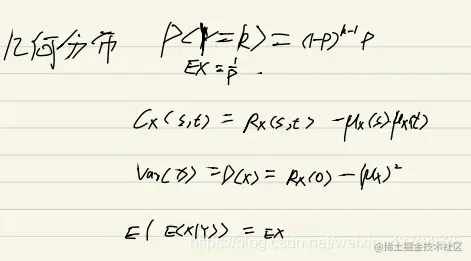 几何分布 P(Y=k) = (1-P)^{k-1} P
EX = \frac{1}{P} .
C_X(s,t) = R_X(s,t) - μ_X(s)μ_X(t)
Var(X) = D(X) = R_X(0) - (μ_X)^2
E( E(X|Y)) = EX
https://blog.csdn.net/weixin_
@稀土掘金技术社区